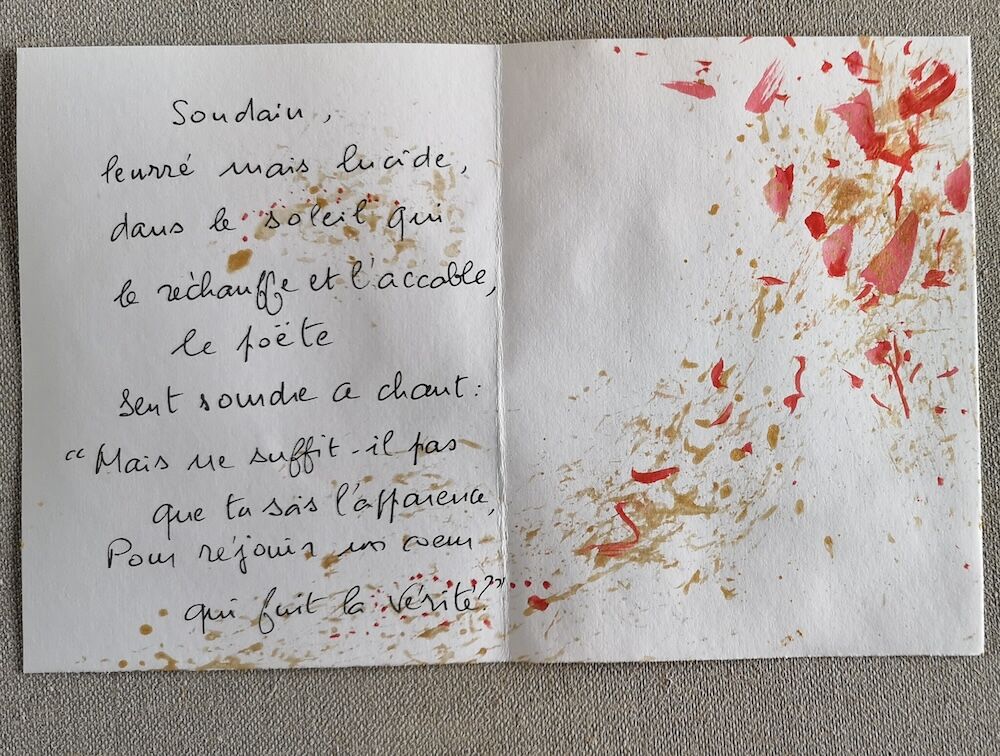 Soudain,
leurré mais lucide,
dans le soleil qui
le réchauffe et l'accable,
le poëte
sent sourdre ce chant :
"Mais ne suffit-il pas
que tu sois l'apparence,
Pour réjouir un coeur
qui fuit la vérité?"